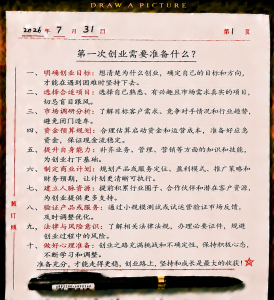 DRAW A PICTURE
2026 年 7 月 31 日 第 1 页
第一次创业需要准备什么?
一、明确创业目标:想清楚为什么创业,确定自己的目标和方向,
才能在遇到困难时坚持下去。
二、选择合适项目:选择自己熟悉、有兴趣且市场需求真实的项目,
切忌盲目跟风。
三、市场调研分析:了解目标客户需求、竞争对手情况和行业趋势,
避免闭门造车。
四、资金预算规划:合理估算启动资金和运营成本,准备好应急
资金,保证现金流稳定。
五、提升自身能力:补齐业务、管理、营销等方面的知识和技能,
为创业打下基础。
六、制定商业计划:规划产品或服务定位、盈利模式、推广策略和
财务预期,让计划更清晰可执行。
七、建立人脉资源:提前积累行业圈子、合作伙伴和潜在客户资源,
为创业提供更多支持。
八、验证产品或服务:通过小规模测试或试运营验证市场反馈,
及时调整优化。
九、法律与风险意识:了解相关法律法规,办理必要证件,规避
创业过程中的风险。
十、做好心理准备:创业之路充满挑战和不确定性,保持积极心态,
不断学习和调整。
准备充分,才能走得更稳,创业路上,坚持和成长是最大的收获!
装订线